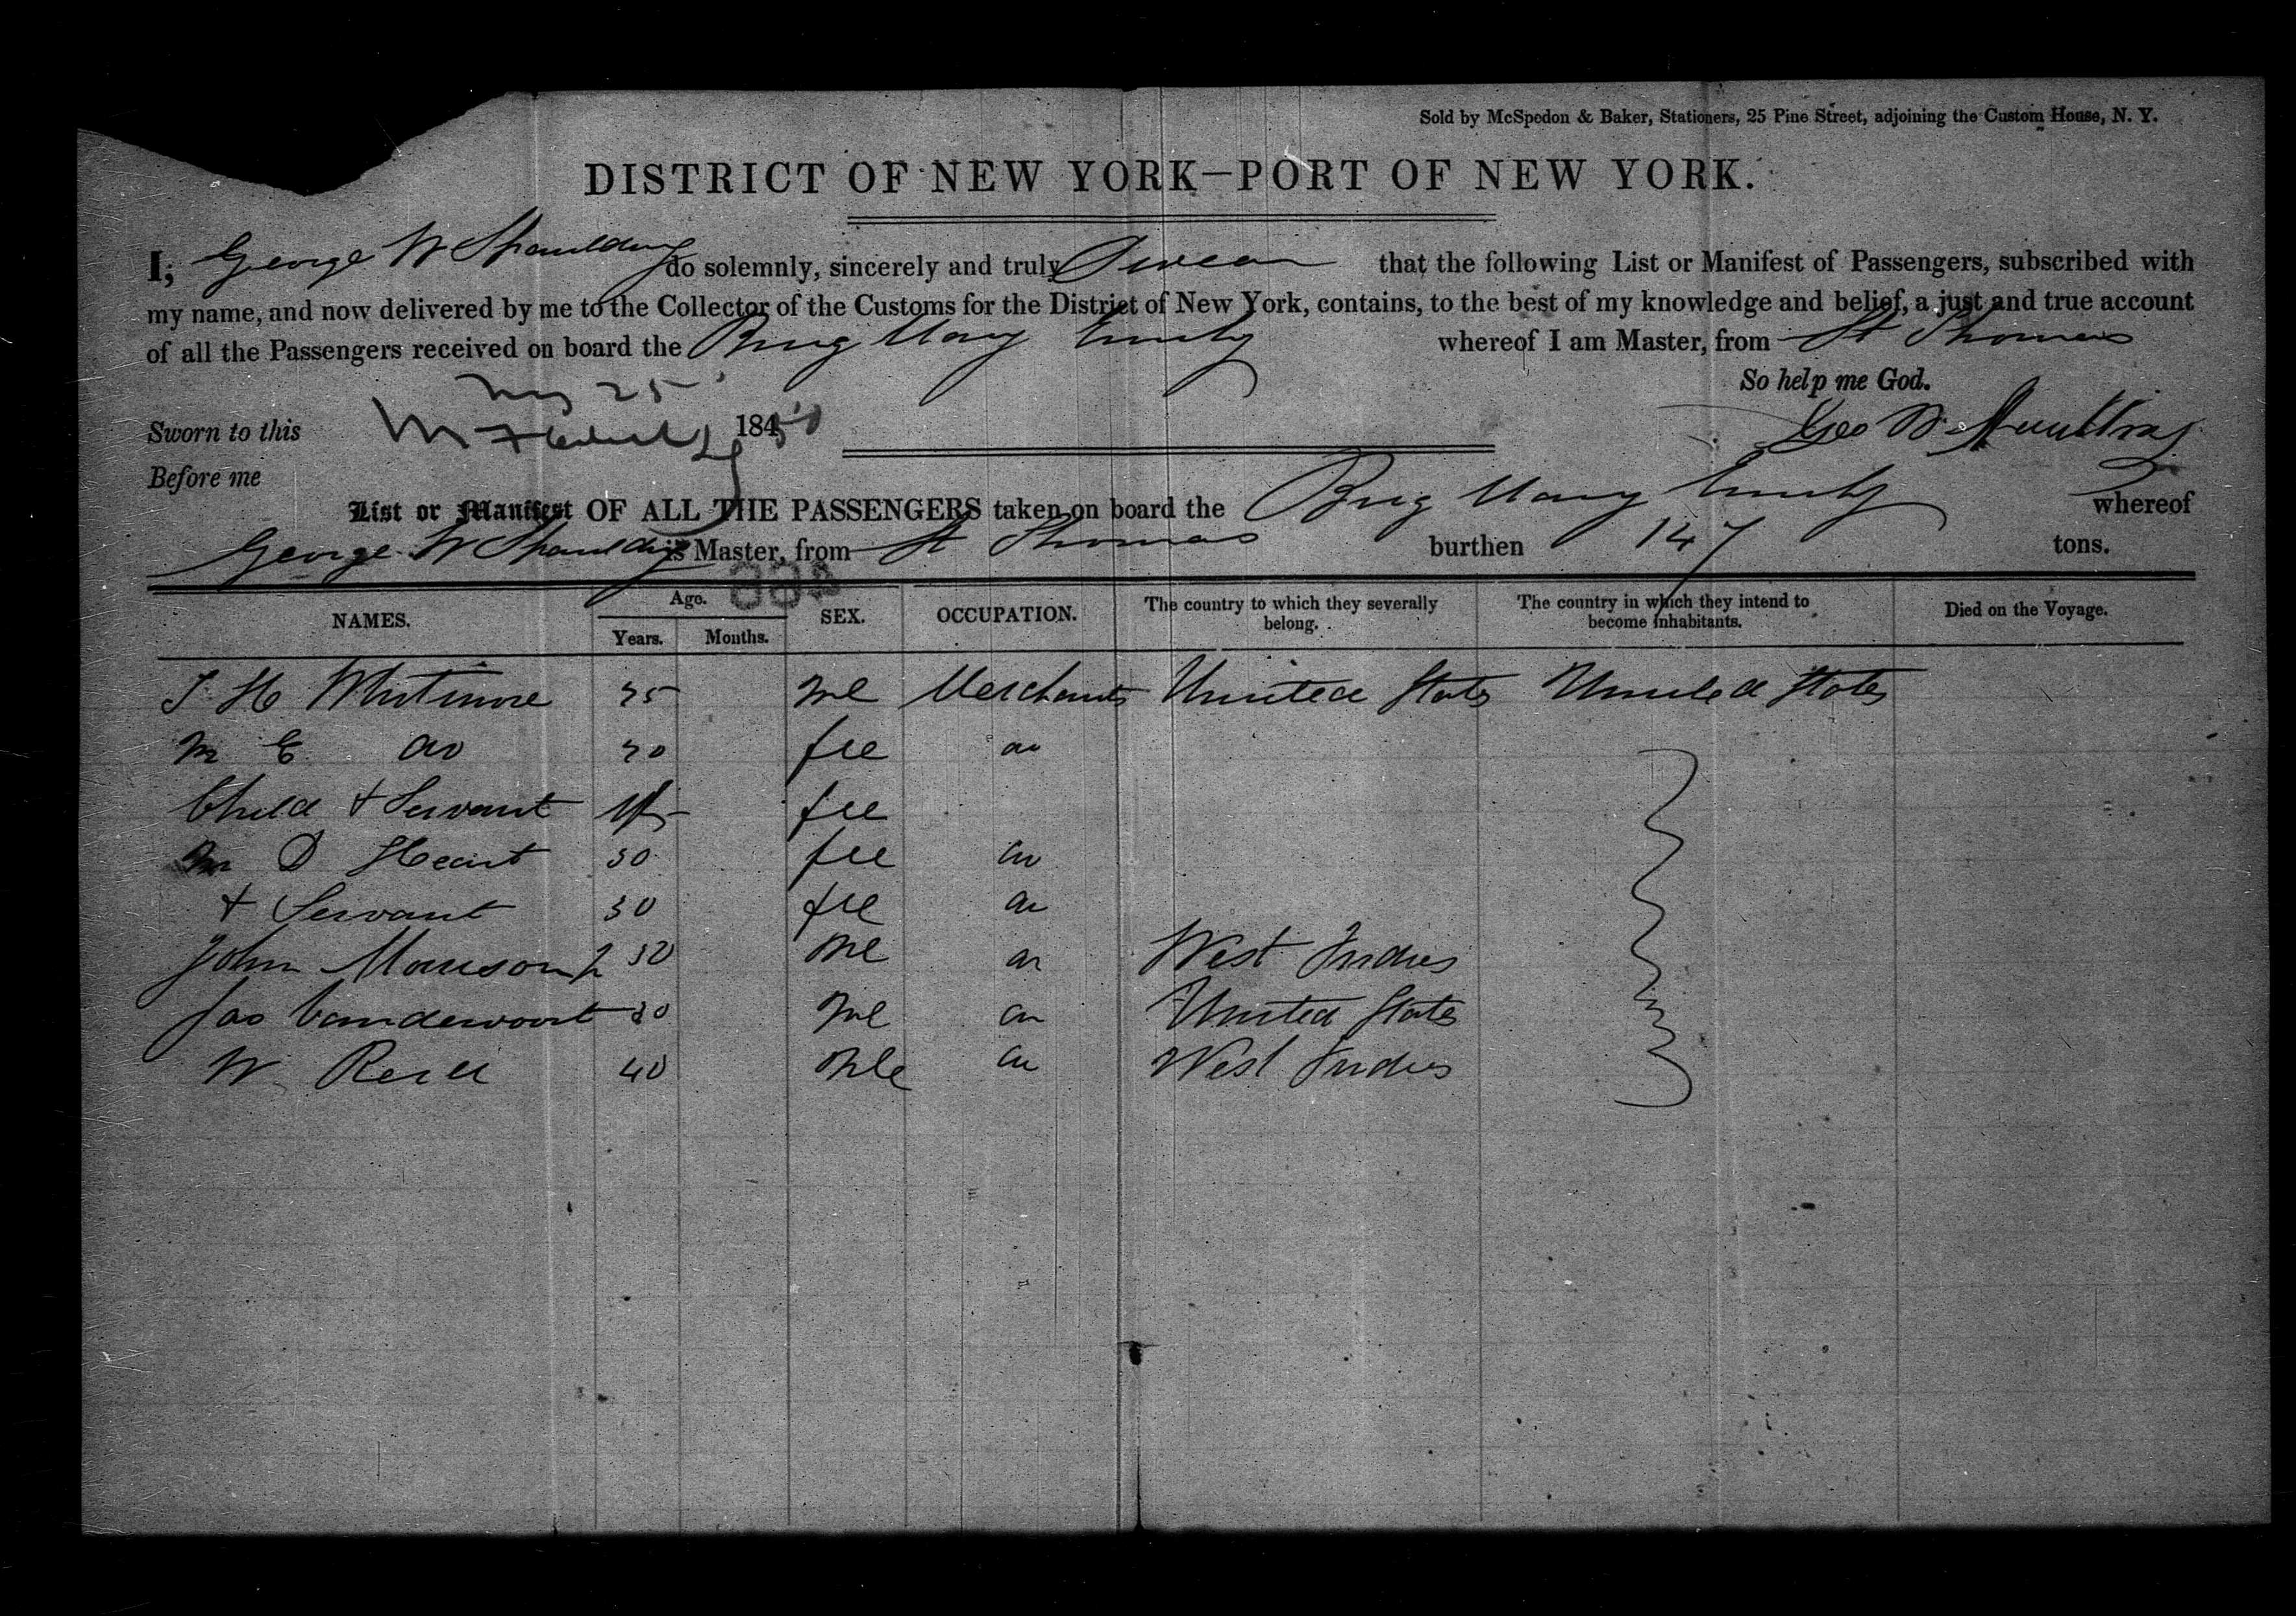 Sold by McSpedon & Baker, Stationers, 25 Pine Street, adjoining the Custom House, N. Y.
DISTRICT OF NEW YORK—PORT OF NEW YORK.
I, George W Spaulding do solemnly, sincerely and truly Swear that the following List or Manifest of Passengers, subscribed with
my name, and now delivered by me to the Collector of the Customs for the District of New York, contains, to the best of my knowledge and belief, a just and true account
of all the Passengers received on board the Brig Mary Emily whereof I am Master, from St Thomas
So help me God.
25
Sworn to this 18450
Geo W Spaulding
Before me
List or Manifest OF ALL THE PASSENGERS taken on board the Brig Mary Emily whereof
George W Spaulding is Master, from St Thomas burthen 147 tons.
NAMES. Age. Years. Months. SEX. OCCUPATION. The country to which they severally belong. The country in which they intend to become inhabitants. Died on the Voyage.
J H Whitmore 25 Mle Merchants United States United States
M E do 20 fle do
Child & Servant fle
D Heart 30 fle do
& Servant 30 fle do
John 30 Mle do West Indies
Jas Vandervoort 30 Mle do United States
W 40 Mle do West Indies